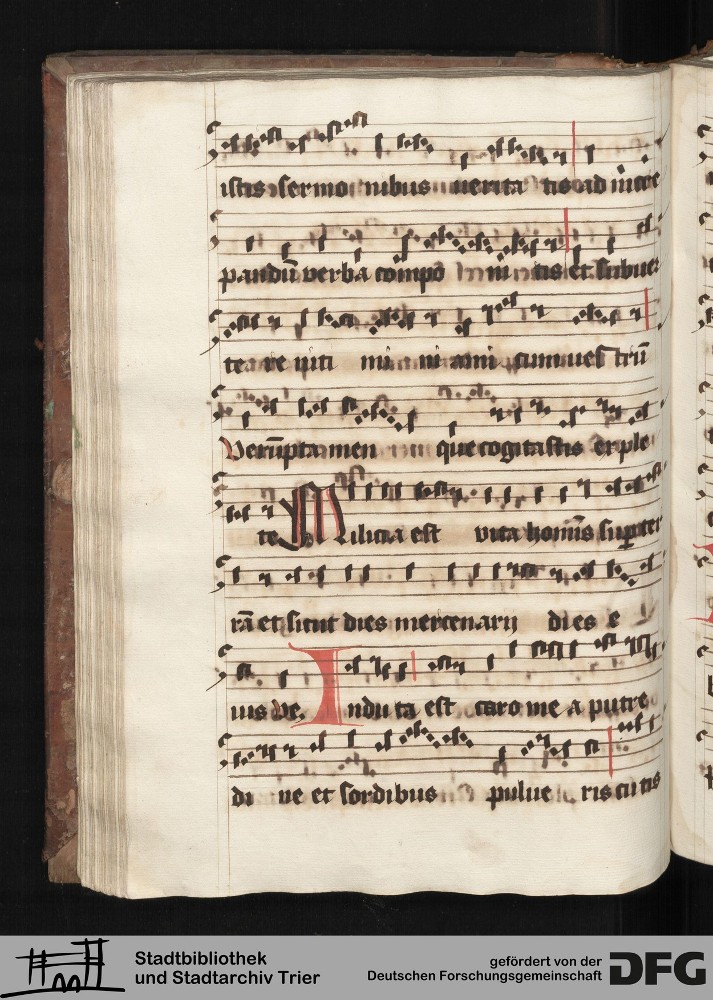 istis sermonibus veritatis ad incre
pandū verba componitis et subuer
tere nitimini amicum vestrū
Verūptamen que cogitastis exple
te Milicia est vita hominis super ter
rā et sicut dies mercenarij dies e
ius ve. Induta est caro mea putre
dine et sordibus pulueris cutis
Stadtbibliothek
und Stadtarchiv Trier
gefördert von der
Deutschen Forschungsgemeinschaft
DFG